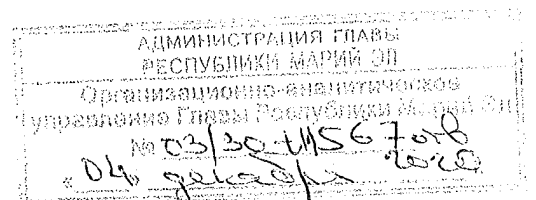 АДМИНИСТРАЦИЯ ГЛАВЫ
РЕСПУБЛИКИ МАРИЙ ЭЛ
Организационно-аналитическое
управление Главы Республики Марий Эл
№ 03/30-
"04" декабря 2020